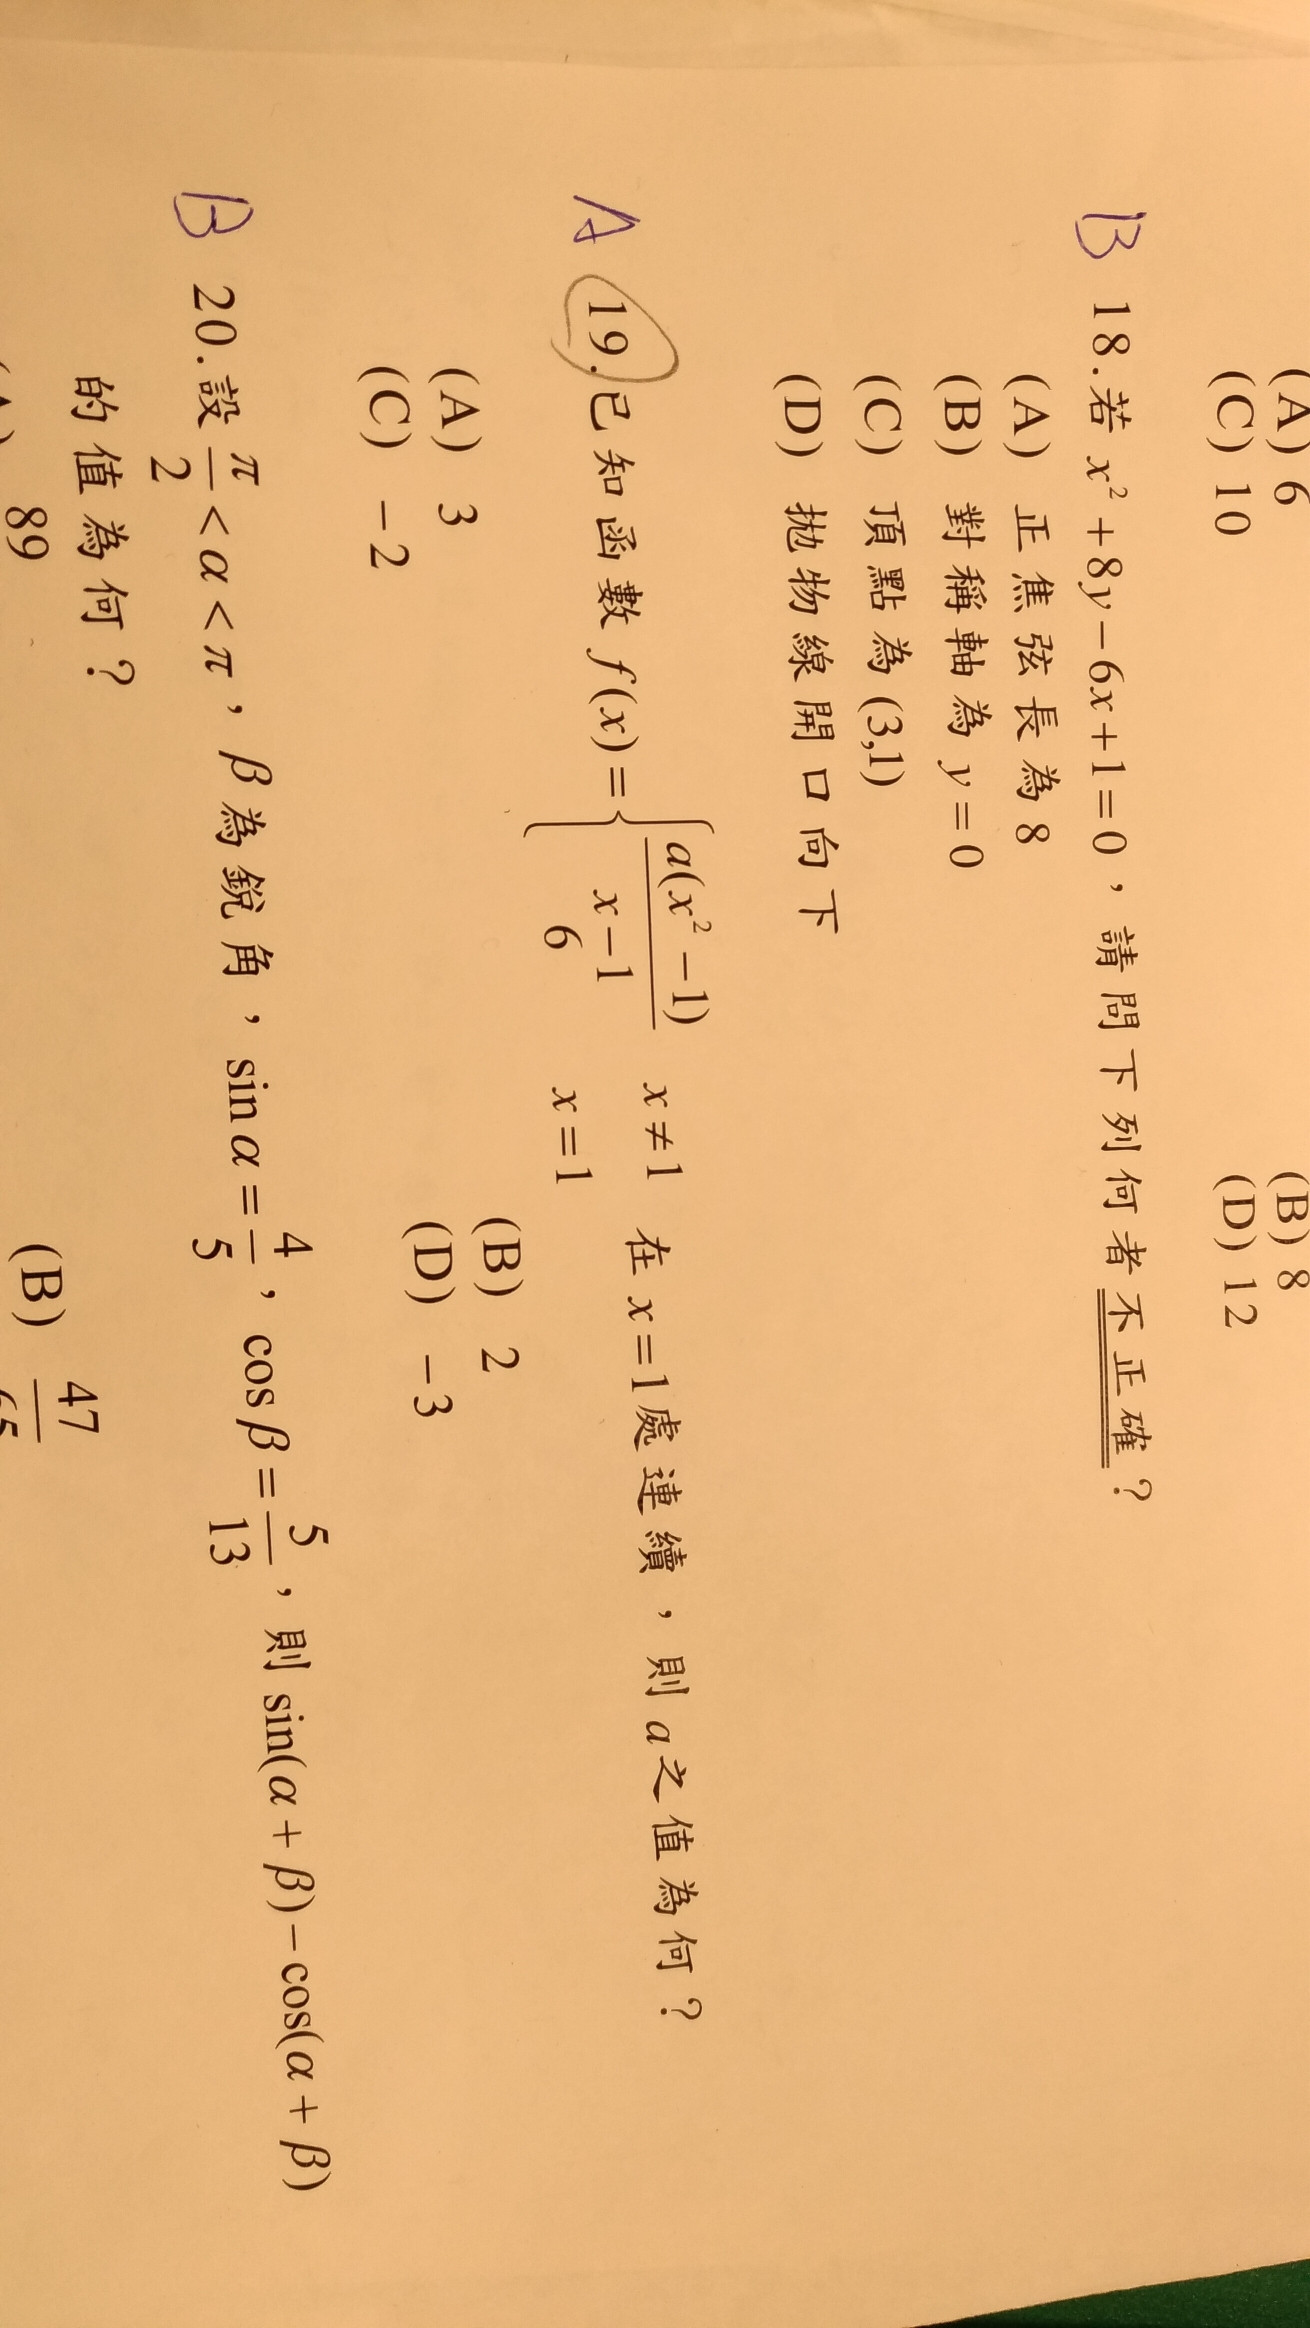 (A) 6 (B) 8
(C) 10 (D) 12
B 18. 若 x²+8y−6x+1=0，請問下列何者不正確？
(A) 正焦弦長為 8
(B) 對稱軸為 y=0
(C) 頂點為 (3,1)
(D) 拋物線開口向下
A 19. 已知函數 f(x)={ a(x²−1)/(x−1) x≠1 在 x=1處連續，則 a之值為何？
6 x=1
(A) 3 (B) 2
(C) −2 (D) −3
B 20. 設 π/2<α<π，β為銳角，sinα=4/5，cosβ=5/13，則 sin(α+β)−cos(α+β)
的值為何？
89 (B) 47